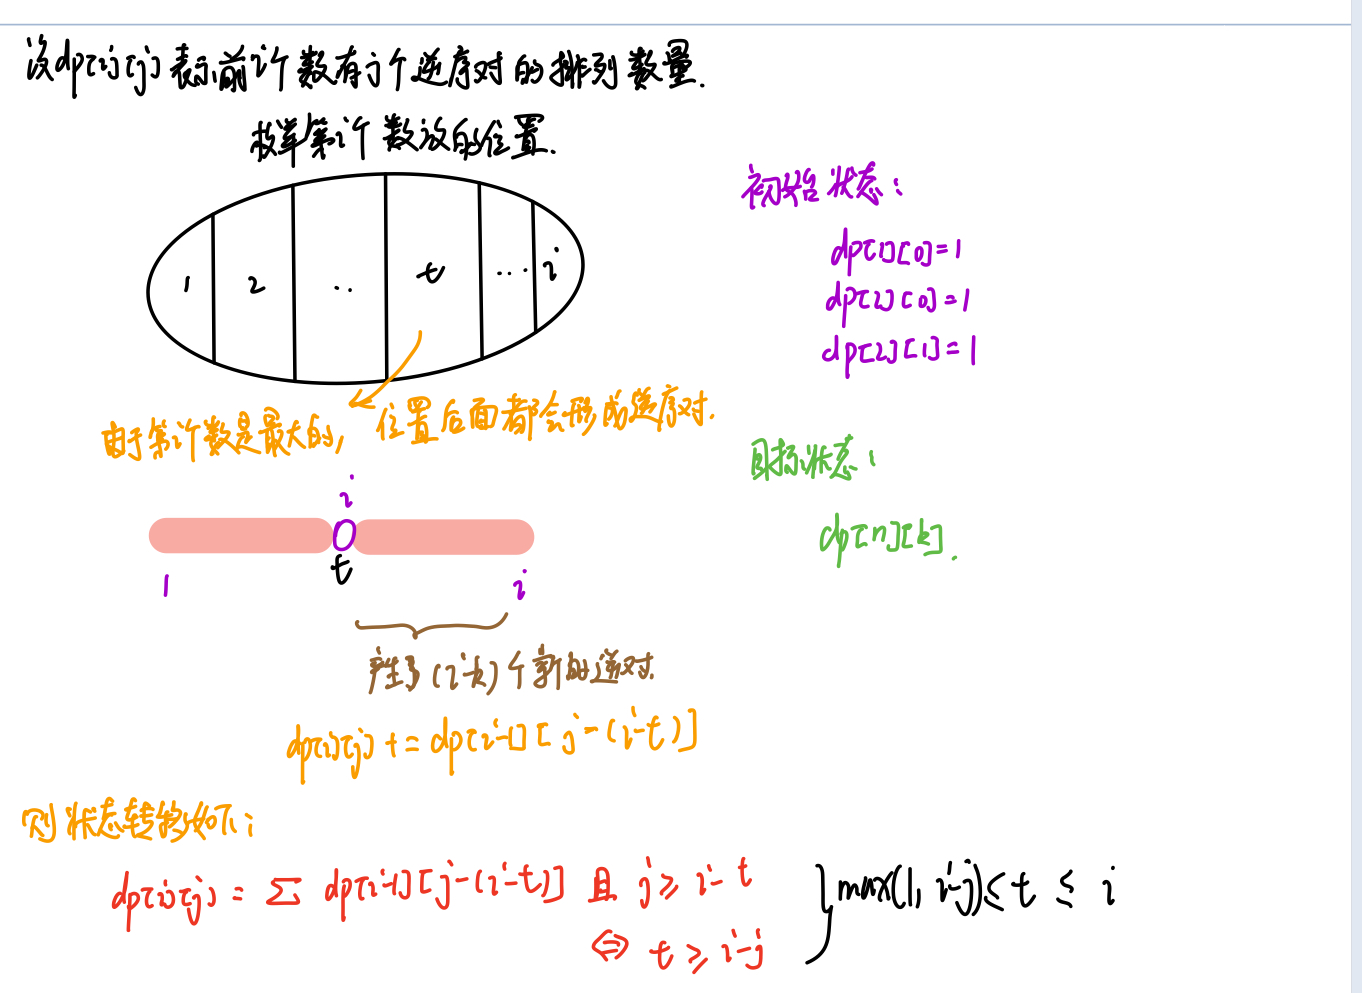 设dp[i][j]表示前i个数有j个逆序对的排列数量.
枚举第i个数放的位置.
1 2 .. t ... i
由于第i个数是最大的, 位置后面都会形成逆序对.
i
t
1 i
产生了(i-k)个新的逆对.
dp[i][j] += dp[i-1][j-(i-t)]
则状态转移如下:
dp[i][j] = Σ dp[i-1][j-(i-t)] 且 j≥i-t
⇔ t≥i-j
max(1, i-j)≤t≤i
初始状态:
dp[1][0]=1
dp[2][0]=1
dp[2][1]=1
目标状态:
dp[n][k].